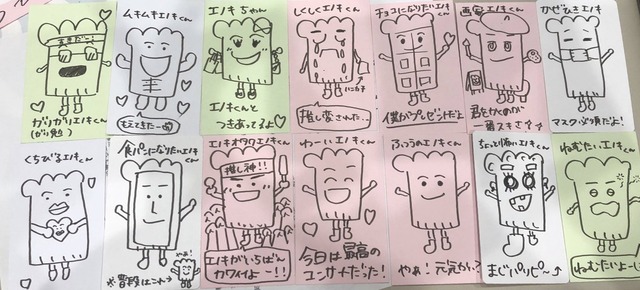 天才だー!
ガリガリエノキくん
(ガリ勉)
ムキムキエノキくん
もえてきたーっ
エノキちゃん
エノキくんと
つきあってるよ
しくしくエノキくん
ハンカチ
推し変された…
チョコになりたいエノキくん
僕がプレゼントだよ
画家エノキくん
君をかくのが
一番スキさ
かぜひきエノキくん
マスク必須だよ!
くちびるエノキくん
食パンになりたいエノキくん
※普段はこれ→
やぁ!
エノキオタクエノキくん
推し神!!
エノキがいちばん
カワイイよー!!
わーいエノキくん
今日は最高の
コンサートだった!
ふつうのエノキくん
やぁ!元気かい?
ちょっと怖いエノキくん
まじパリピ~
ねむたいエノキくん
ねむたいよー